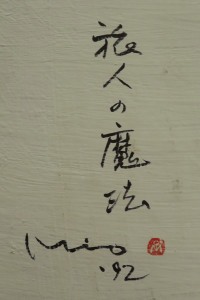 旅人の魔法
Miho
'92